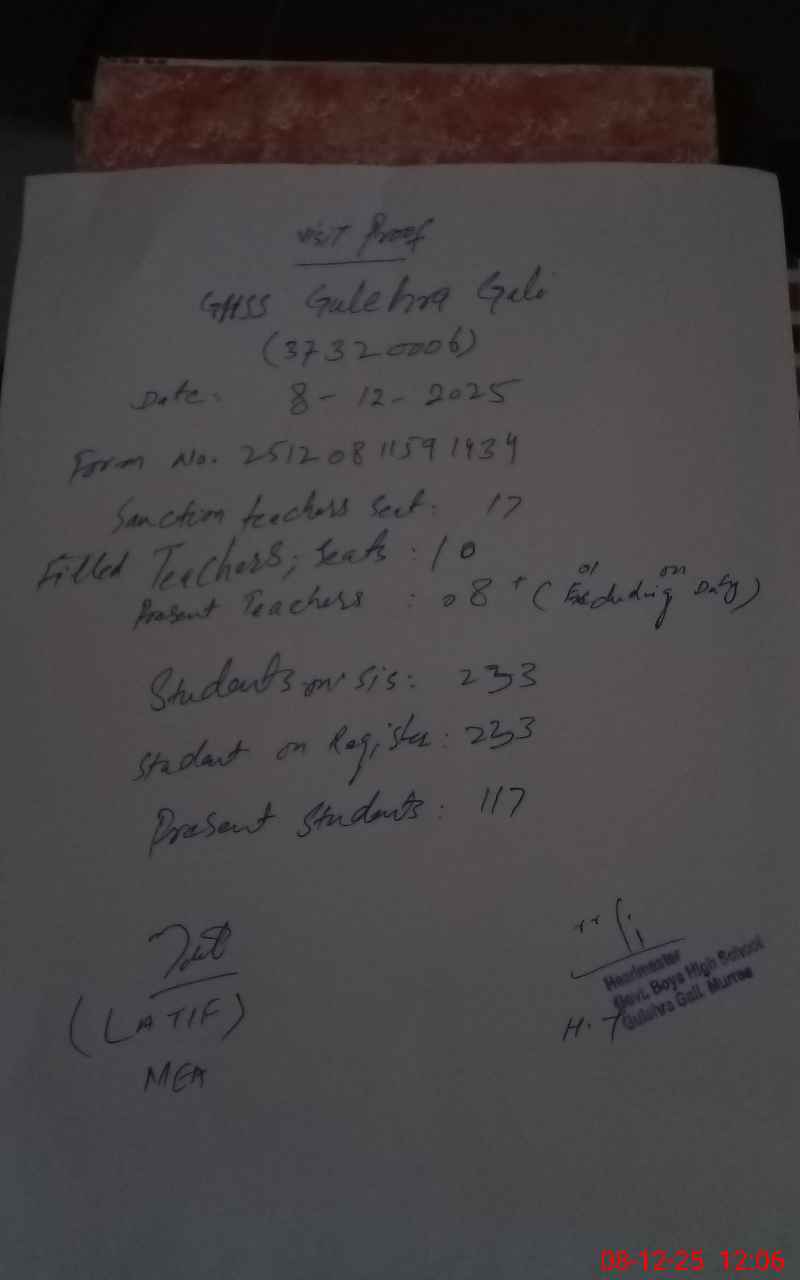 Visit Proof
GHSS Gulehra Gali
(37320006)
Date: 8-12-2025
Form No. 25120811591934
Sanction teachers seat: 17
Filled Teachers; seats: 10
Present Teachers : 08 + (01 Excluding on Duty)
Students on SIS: 233
Student on Register: 233
Present Students: 117
(LATIF)
MEA
Headmaster
Govt. Boys High School
Gulehra Gali, Murree
H.T
08-12-25 12:06